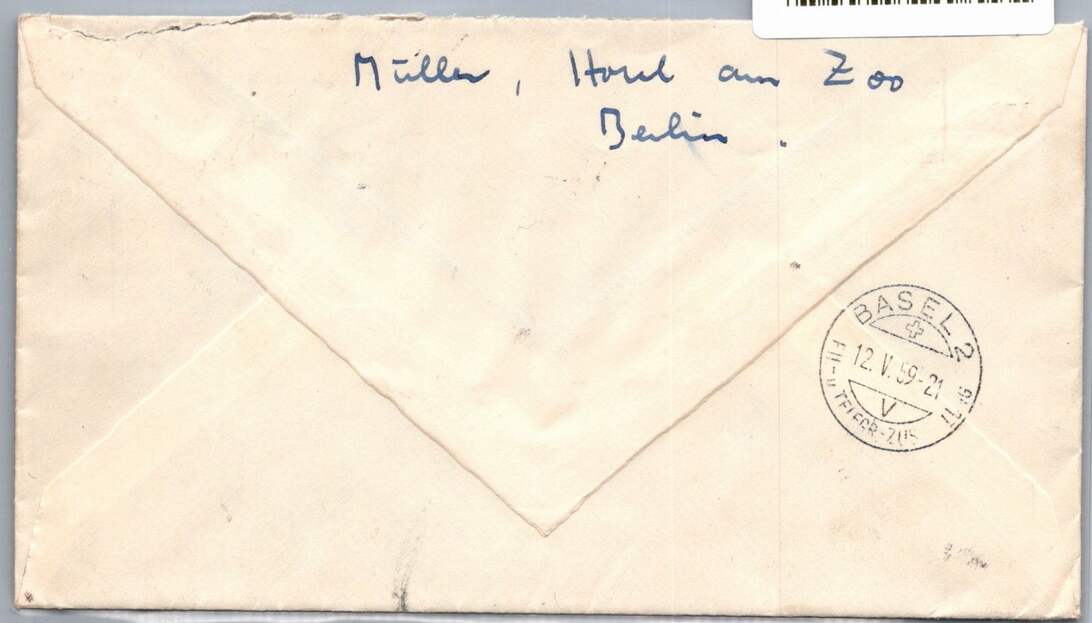 Müller, Hotel am Zoo
Berlin.
BASEL 2
12. V. 59-21
V
TELEGR.-ZUST